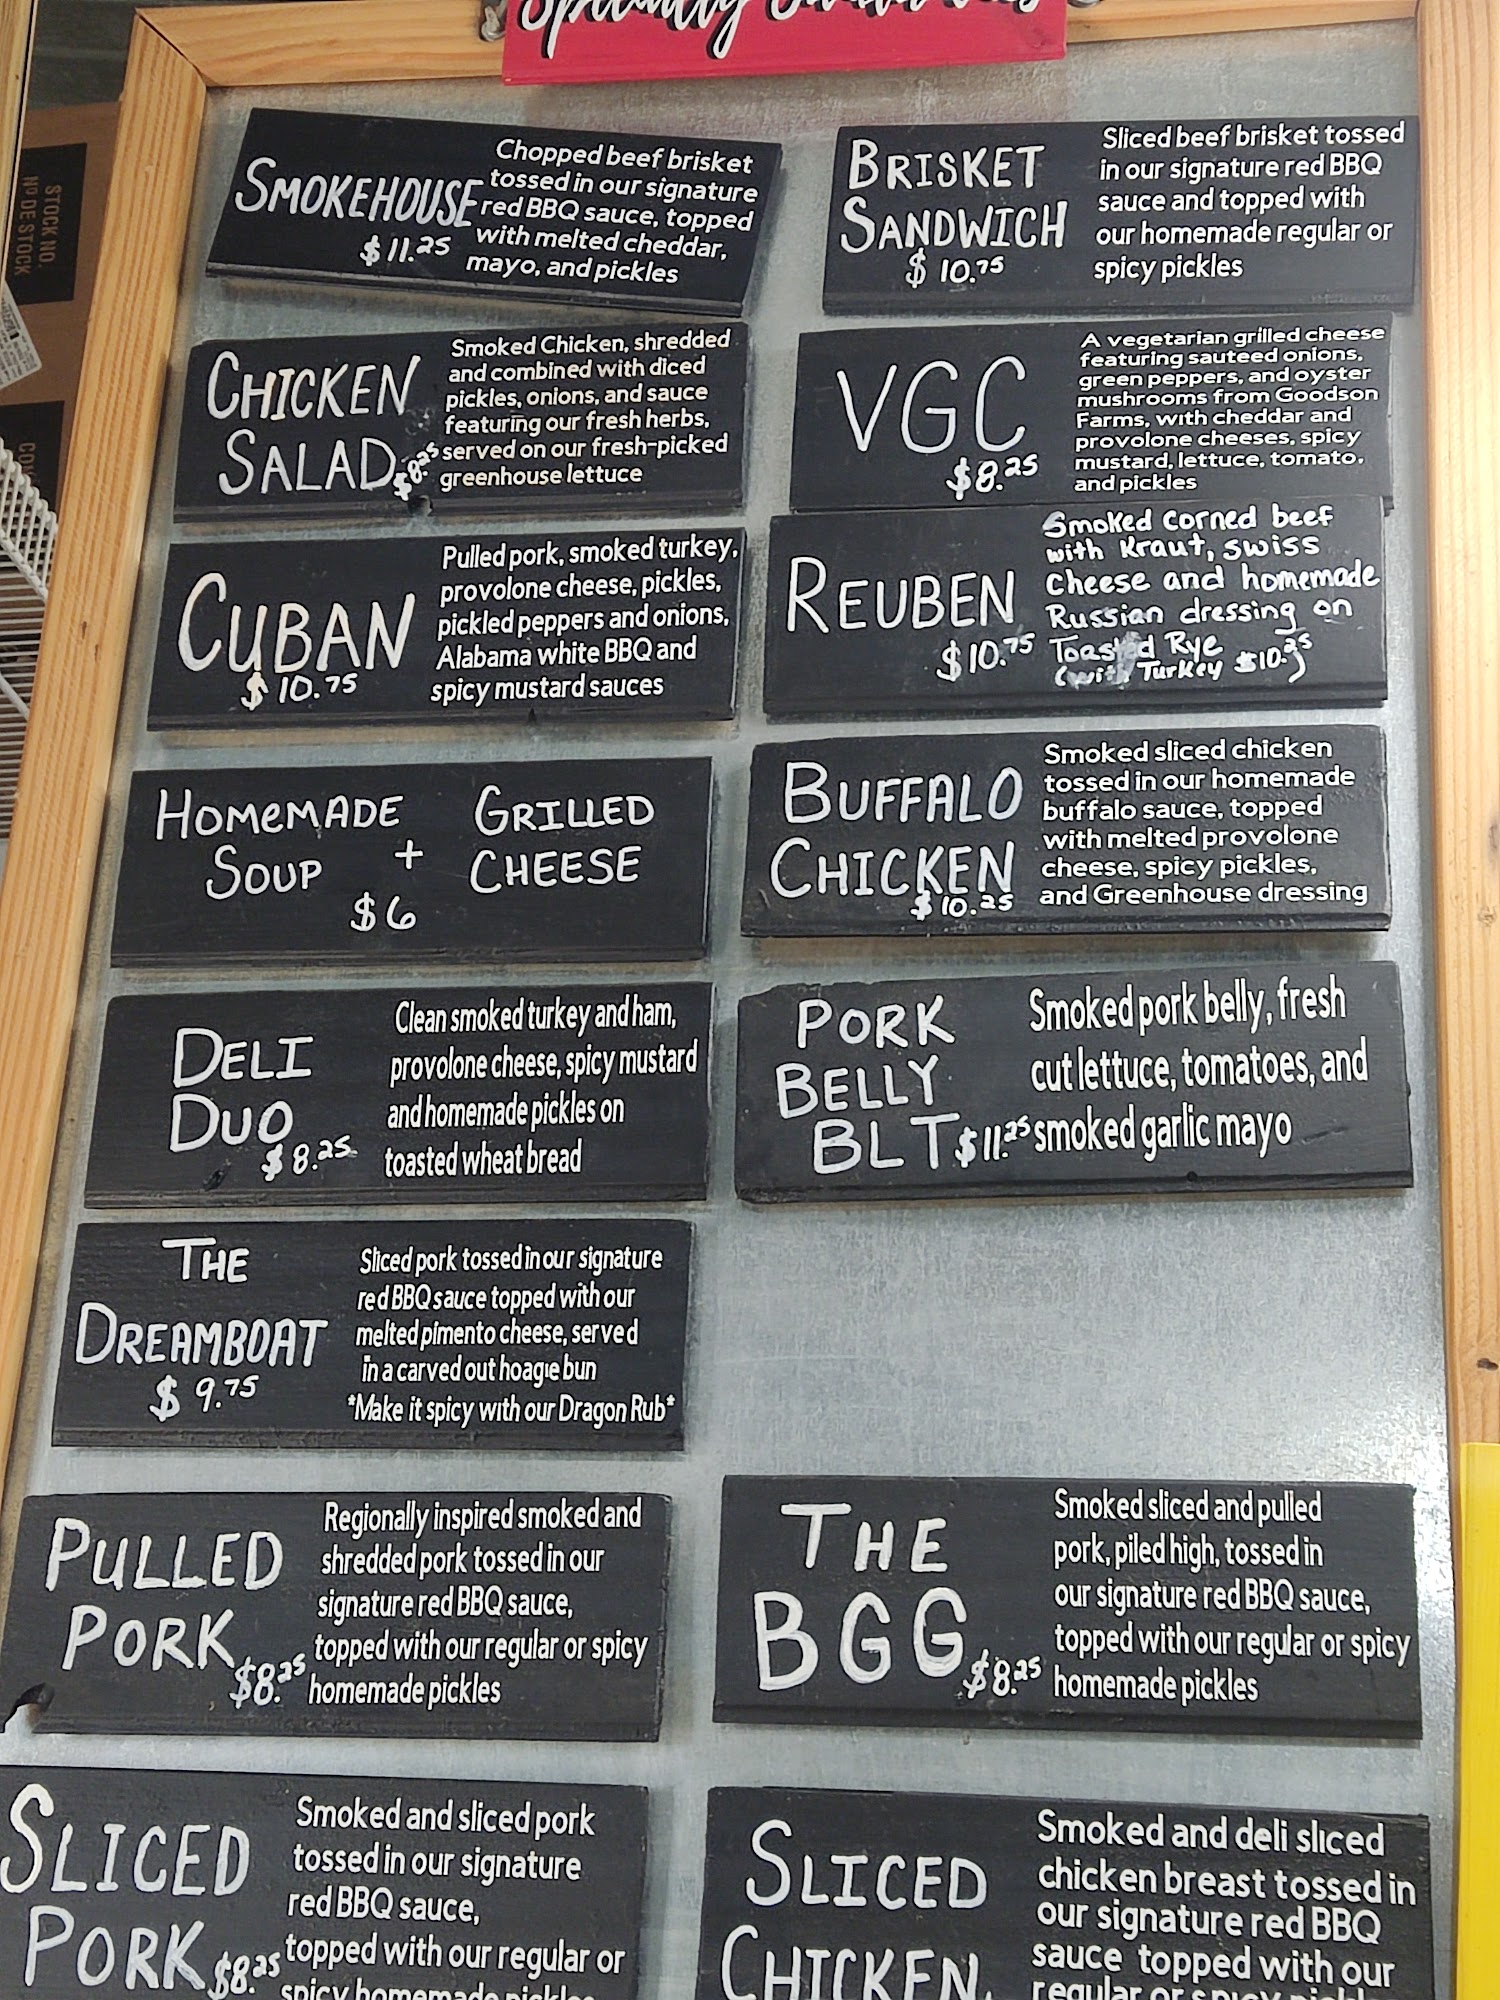 Specialty Sandwiches
SMOKEHOUSE
$11.25
Chopped beef brisket
tossed in our signature
red BBQ sauce, topped
with melted cheddar,
mayo, and pickles
BRISKET
SANDWICH
$10.75
Sliced beef brisket tossed
in our signature red BBQ
sauce and topped with
our homemade regular or
spicy pickles
CHICKEN
SALAD
$8.25
Smoked Chicken, shredded
and combined with diced
pickles, onions, and sauce
featuring our fresh herbs,
served on our fresh-picked
greenhouse lettuce
VGC
$8.25
A vegetarian grilled cheese
featuring sauteed onions,
green peppers, and oyster
mushrooms from Goodson
Farms, with cheddar and
provolone cheeses, spicy
mustard, lettuce, tomato,
and pickles
CUBAN
$10.75
Pulled pork, smoked turkey,
provolone cheese, pickles,
pickled peppers and onions,
Alabama white BBQ and
spicy mustard sauces
REUBEN
$10.75
Smoked corned beef
with Kraut, swiss
cheese and homemade
Russian dressing on
Toasted Rye
(with Turkey $10.25)
HOMEMADE GRILLED
SOUP + CHEESE
$6
BUFFALO
CHICKEN
$10.25
Smoked sliced chicken
tossed in our homemade
buffalo sauce, topped
with melted provolone
cheese, spicy pickles,
and Greenhouse dressing
DELI
DUO
$8.25
Clean smoked turkey and ham,
provolone cheese, spicy mustard
and homemade pickles on
toasted wheat bread
PORK
BELLY
BLT $11.25
Smoked pork belly, fresh
cut lettuce, tomatoes, and
smoked garlic mayo
THE
DREAMBOAT
$9.75
Sliced pork tossed in our signature
red BBQ sauce topped with our
melted pimento cheese, served
in a carved out hoagie bun
*Make it spicy with our Dragon Rub*
PULLED
PORK
$8.25
Regionally inspired smoked and
shredded pork tossed in our
signature red BBQ sauce,
topped with our regular or spicy
homemade pickles
THE
BGG
$8.25
Smoked sliced and pulled
pork, piled high, tossed in
our signature red BBQ sauce,
topped with our regular or spicy
homemade pickles
SLICED
PORK
$8.25
Smoked and sliced pork
tossed in our signature
red BBQ sauce,
topped with our regular or
spicy homemade pickles
SLICED
CHICKEN
Smoked and deli sliced
chicken breast tossed in
our signature red BBQ
sauce topped with our
regular or spicy
STOCK NO.
Nº DE STOCK